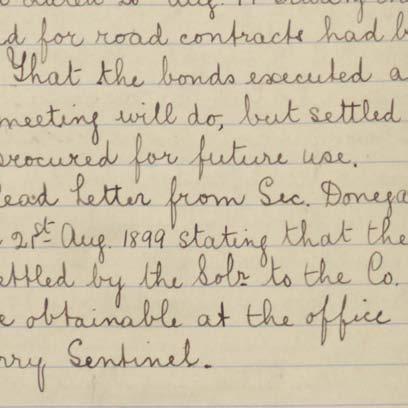 for road contracts had
That the bonds executed a
meeting will do, but settled
procured for future use.
Read Letter from Sec. Donega
21st Aug. 1899 stating that the
settled by the Solr to the Co.
e obtainable at the office
rry Sentinel.